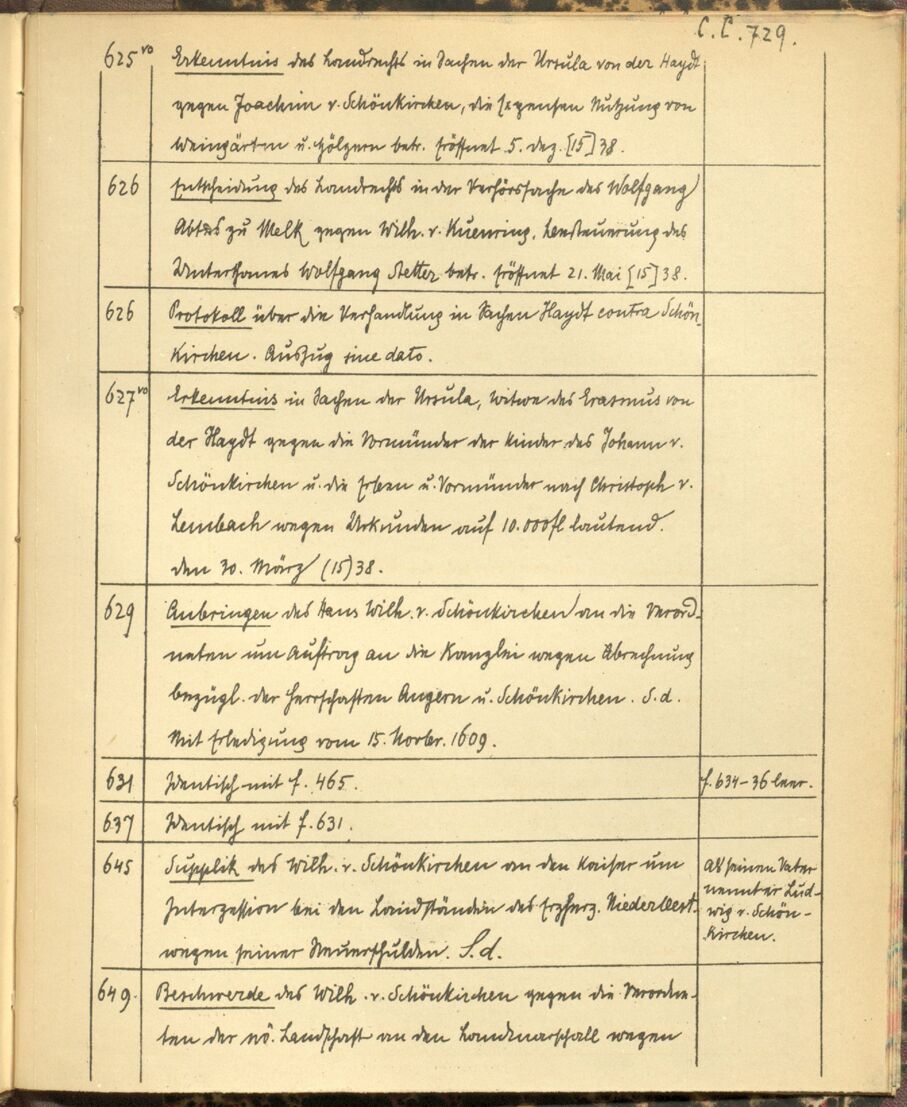 C.C. 729.
625 vo Erkenntnis des Landrechts in Sachen der Ursula von der Haydt
gegen Joachim v. Schönkirchen, die Nutzung von
Weingärten u. Hölzern betr. Eröffnet 5. Dez. [15]38.
626 Entscheidung des Landrechts in der Verhörssache des Wolfgang
Abtes zu Melk gegen Wilh. v. Kuenring, Besteuerung des
Unterthanes Wolfgang Stetter betr. Eröffnet 21. Mai [15]38.
626 Protokoll über die Verhandlung in Sachen Haydt contra Schön-
kirchen. Auszug sine dato.
627 vo Erkenntnis in Sachen der Ursula, Witwe des Erasmus von
der Haydt gegen die Vormünder der Kinder des Johann v.
Schönkirchen u. die Erben u. Vormünder nach Christoph v.
Lembach wegen Urkunden auf 10.000 fl lautend.
den 30. März (15)38.
629 Anbringen des Hans Wilh. v. Schönkirchen an die Verord-
neten um Auftrag an die Kanzlei wegen Abrechnung
bezügl. der Herrschaften Angern u. Schönkirchen. S.d.
Mit Erledigung vom 15. Novbr. 1609.
631 Identisch mit f. 465. f. 634-36 leer.
637 Identisch mit f. 631.
645 Supplik des Wilh. v. Schönkirchen an den Kaiser um
Interzession bei den Landständen des Erzherz. Niederoest.
wegen seiner Steuerschulden. S.d.
Als seinen Vater
nennt er Lud-
wig v. Schön-
kirchen.
649. Beschwerde des Wilh. v. Schönkirchen gegen die Verordne-
ten der nö. Landschaft an den Landmarschall wegen